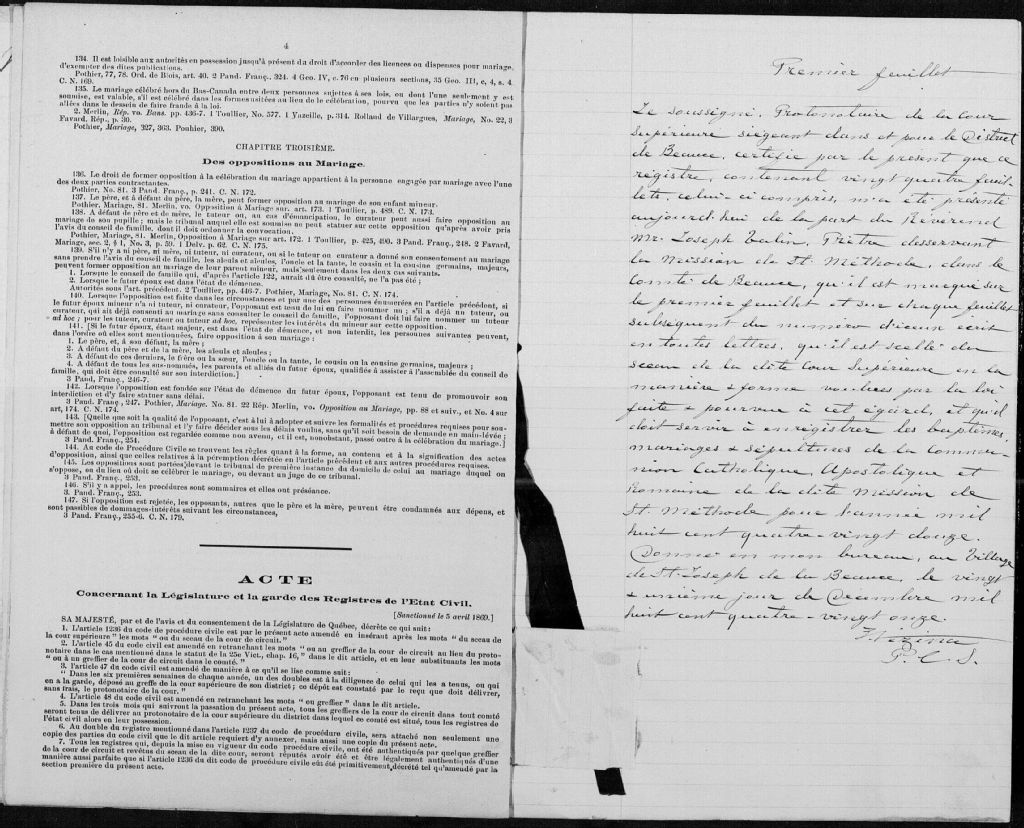 4
134. Il est loisible aux autorités en possession jusqu'à présent du droit d'accorder les licences ou dispenses pour mariage,
d'exempter des dites publications.
Pothier, 77, 78. Ord. de Blois, art. 40. 2 Pand. Franç., 324. 4 Geo. IV, c. 76 en plusieurs sections, 35 Geo. III, c, 4, s. 4.
C. N. 169.
135. Le mariage célébré hors du Bas-Canada entre deux personnes sujettes à ses lois, ou dont l'une seulement y est
soumise, est valable, s'il est célébré dans les formes usitées au lieu de la célébration, pourvu que les parties n'y soient pas
allées dans le dessein de faire fraude à la loi.
2. Merlin, Rép. vo. Bans. pp. 436-7. 1 Toullier, No. 577. 1 Vazeille, p. 314. Rolland de Villargues, Mariage, No. 22, 3
Favard, Rep., p. 30.
Pothier, Mariage, 327, 363. Pouhier, 390.
CHAPITRE TROISIÈME.
Des oppositions au Mariage.
136. Le droit de former opposition à la célébration du mariage appartient à la personne engagée par mariage avec l'une
des deux parties contractantes.
Pothier, No. 81. 3 Pand. Franç., p. 241. C. N. 172.
137. Le père, et à défaut du père, la mère, peut former opposition au mariage de son enfant mineur.
Pothier, Mariage, 81. Merlin, vo. Opposition à Mariage sur. art. 173. 1 Toullier, p. 489. C. N. 173.
138. A défaut de père et de mère, le tuteur ou, au cas d'émancipation, le curateur peut aussi faire opposition au
mariage de son pupille; mais le tribunal auquel elle est soumise ne peut statuer sur cette opposition qu'après avoir pris
l'avis du conseil de famille, dont il doit ordonner la convocation.
Pothier, Mariage, 81. Merlin, Opposition à Mariage sur art. 172. 1 Toullier, p. 425, 490. 3 Pand. Franç., 248. 2 Favard,
Mariage, sec. 2, § 1, No. 3, p. 59. 1 Delv. p. 62. C. N. 175.
139. S'il n'y a ni père, ni mère, ni tuteur, ni curateur, ou si le tuteur ou curateur a donné son consentement au mariage
sans prendre l'avis du conseil de famille, les aïeuls et aïeules, l'oncle et la tante, le cousin et la cousine germains, majeurs,
peuvent former opposition au mariage de leur parent mineur, mais seulement dans les deux cas suivants.
1. Lorsque le conseil de famille qui, d'après l'article 122, aurait dû être consulté, ne l'a pas été ;
2. Lorsque le futur époux est dans l'état de démence.
Autorités sous l'art. précédent. 2 Toullier, pp. 446-7. Pothier, Mariage, No. 81. C. N. 174.
140. Lorsque l'opposition est faite dans les circonstances et par une des personnes énumérées en l'article précédent, si
le futur époux mineur n'a ni tuteur, ni curateur, l'opposant est tenu de lui en faire nommer un ; s'il a déjà un tuteur, ou
curateur, qui ait déjà consenti au mariage sans consulter le conseil de famille, l'opposant doit lui faire nommer un tuteur
ad hoc ; pour les tuteur, curateur ou tuteur ad hoc, représenter les intérêts du mineur sur cette opposition.
141. [Si le futur époux, étant majeur, est dans l'état de démence, et non interdit, les personnes suivantes peuvent,
dans l'ordre où elles sont mentionnées, faire opposition à son mariage :
1. Le père et, à son défaut, la mère ;
2. A défaut du père et de la mère, les aïeuls et aïeules ;
3. A défaut de ces derniers, le frère ou la sœur, l'oncle ou la tante, le cousin ou la cousine germains, majeurs ;
4. A défaut de tous les sus-nommés, les parents et alliés du futur époux, qualifiés à assister à l'assemblée du conseil de
famille, qui doit être consulté sur son interdiction.]
3 Pand. Franç., 246-7.
142. Lorsque l'opposition est fondée sur l'état de démence du futur époux, l'opposant est tenu de promouvoir son
interdiction et d'y faire statuer sans délai.
3 Pand. Franç., 247. Pothier, Mariage. No. 81. 22 Rép. Merlin, vo. Opposition au Mariage, pp. 88 et suiv., et No. 4 sur
art, 174. C. N. 174.
143. [Quelle que soit la qualité de l'opposant, c'est à lui à adopter et suivre les formalités et procédures requises pour sou-
mettre son opposition au tribunal et l'y faire décider sous les délais voulus, sans qu'il soit besoin de demande en main-lévée ;
à défaut de quoi, l'opposition est regardée comme non avenue, et il est, nonobstant, passé outre à la célébration du mariage.]
3 Pand. Franç., 254.
144. Au code de Procédure Civile se trouvent les règles quant à la forme, au contenu et à la signification des actes
d'opposition, ainsi que celles relatives à la péremption décrétée en l'article précédent et aux autres procédures requises.
145. Les oppositions sont portées devant le tribunal de première instance du domicile de celui au mariage duquel on
s'oppose, ou du lieu où doit se célébrer le mariage, ou devant un juge de ce tribunal.
3 Pand. Franç., 253.
146. S'il y a appel, les procédures sont sommaires et elles ont préséance.
3. Pand. Franç., 253.
147. Si l'opposition est rejetée, les opposants, autres que le père et la mère, peuvent être condamnés aux dépens, et
sont passibles de dommages-intérêts suivant les circonstances,
3 Pand. Franç., 255-6. C. N. 179.
ACTE
Concernant la Législature et la garde des Registres de l'Etat Civil.
[Sanctionné le 5 avril 1869.]
SA MAJESTÉ, par et de l'avis et du consentement de la Législature de Québec, décrète ce qui suit:
1. L'article 1236 du code de procédure civile est par le présent acte amendé en insérant après les mots " du sceau de
la cour supérieure " les mots " ou du sceau de la cour de circuit."
2. L'article 45 du code civil est amendé en retranchant les mots " ou au greffier de la cour de circuit au lieu du proto-
notaire dans le cas mentionné dans le statut de la 25e Vict., chap. 16," dans le dit article, et en leur substituants les mots
" ou à un greffier de la cour de circuit dans le comté."
3. l'article 47 du code civil est amendé de manière à ce qu'il se lise comme suit:
" Dans les six premières semaines de chaque année, un des doubles est à la diligence de celui qui les a tenus, ou qui
en a la garde, déposé au greffe de la cour supérieure de son district; ce dépôt est constaté par le reçu que doit délivrer,
sans frais, le protonotaire de la cour. "
4. L'article 48 du code civil est amendé en retranchant les mots " ou greffier " dans le dit article.
5. Dans les trois mois qui suivront la passation du présent acte, tous les greffiers de la cour de circuit dans tout comté
seront tenus de délivrer au protonotaire de la cour supérieure du district dans lequel ce comté est situé, tous les registres de
l'état civil alors en leur possession.
6. Au double du registre mentionné dans l'article 1237 du code de procédure civile, sera attaché non seulement une
copie des parties du code civil que le dit article requiert d'y annexer, mais aussi une copie du présent acte.
7. Tous les registres qui, depuis la mise en vigueur du code procédure civile, ont été authentiqués par quelque greffier
de la cour de circuit et revêtus du sceau de la dite cour, seront réputés avoir été et être légalement authentiqués d'une
manière aussi parfaite que si l'article 1236 du dit code de procédure civile eût été primitivement décrété tel qu'amendé par la
section première du présent acte.
Premier feuillet
Je soussigné, Protonotaire de la cour
Supérieure siégeant dans et pour le District
de Beauce, certifie par le présent que ce
registre, contenant vingt quatre feuil-
lets, celui-ci compris, m'a été présenté
aujourd'hui de la part du Révérend
Mr. Joseph Valin, Prêtre desservant
la Mission de St. Méthode, dans le
Comté de Beauce, qu'il est marqué sur
le premier feuillet et sur chaque feuillet
subséquent du numéro d'iceux écrit
en toutes lettres, qu'il est scellé du
sceau de la dite Cour Supérieure en la
manière & forme voulues par la loi
faite & pourvue à cet égard, et qu'il
doit servir à enregistrer les baptêmes,
mariages & sépultures de la Commu-
nion Catholique, Apostolique et
Romaine de la dite Mission de
St Méthode pour l'année mil
huit cent quatre-vingt douze.
Donné en mon bureau, au Village
de St-Joseph de la Beauce, le vingt
& unième jour de Décembre mil
huit cent quatre-vingt onze.
Vézina
P. C. S.